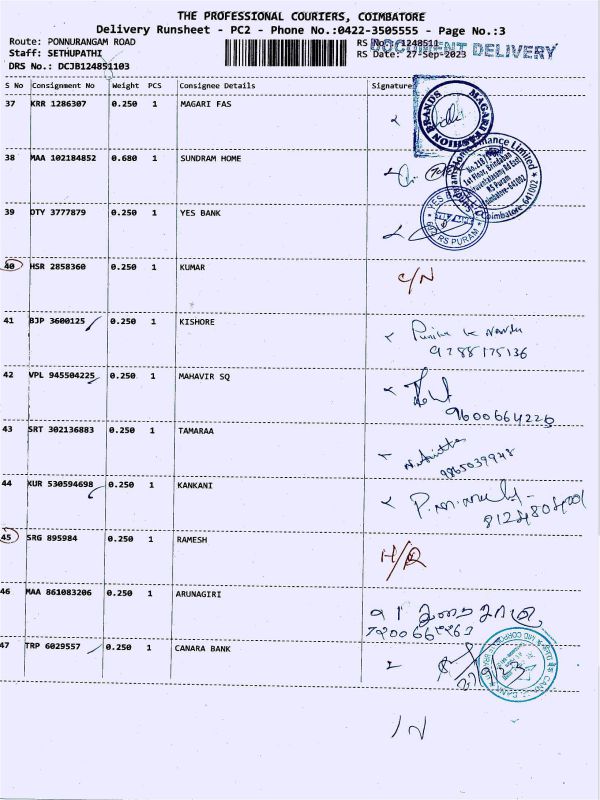 THE PROFESSIONAL COURIERS, COIMBATORE
Delivery Runsheet - PC2 - Phone No.:0422-3505555 - Page No.:3
Route: PONNURANGAM ROAD RS No.: 1248511
DOCUMENT DELIVERY
Staff: SETHUPATHI RS Date: 27-Sep-2023
DRS No.: DCJB124851103
S No Consignment No Weight PCS Consignee Details Signature
37 KRR 1286307 0.250 1 MAGARI FAS
MAGARI FASHION BRANDS
38 MAA 102184852 0.680 1 SUNDRAM HOME
Finance Limited
1st Floor,
RS Puram
Coimbatore-641002
39 DTY 3777879 0.250 1 YES BANK
YES BANK
RS PURAM
40 HSR 2858360 0.250 1 KUMAR
C/N
41 BJP 3600125 0.250 1 KISHORE
9288175136
42 VPL 945504225 0.250 1 MAHAVIR SQ
9600664226
43 SRT 302136883 0.250 1 TAMARAA
9865039948
44 KUR 530594698 0.250 1 KANKANI
45 SRG 895984 0.250 1 RAMESH
46 MAA 861083206 0.250 1 ARUNAGIRI
47 TRP 6029557 0.250 1 CANARA BANK
27/9/23